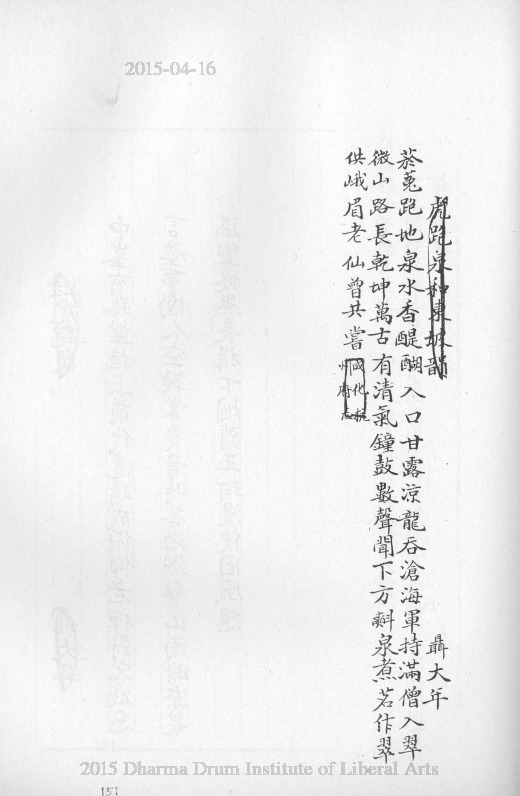 2015-04-16
虎跑泉和東坡韻 聶大年
菸菟跑地泉水香醍醐入口甘露涼龍吞滄海軍持滿僧入翠
微山路長乾坤萬古有清氣鐘鼓數聲聞下方㪺泉煮茗作翠
供峨眉老仙曾共嘗
成化杭
州府志
2015 Dharma Drum Institute of Liberal Arts
151